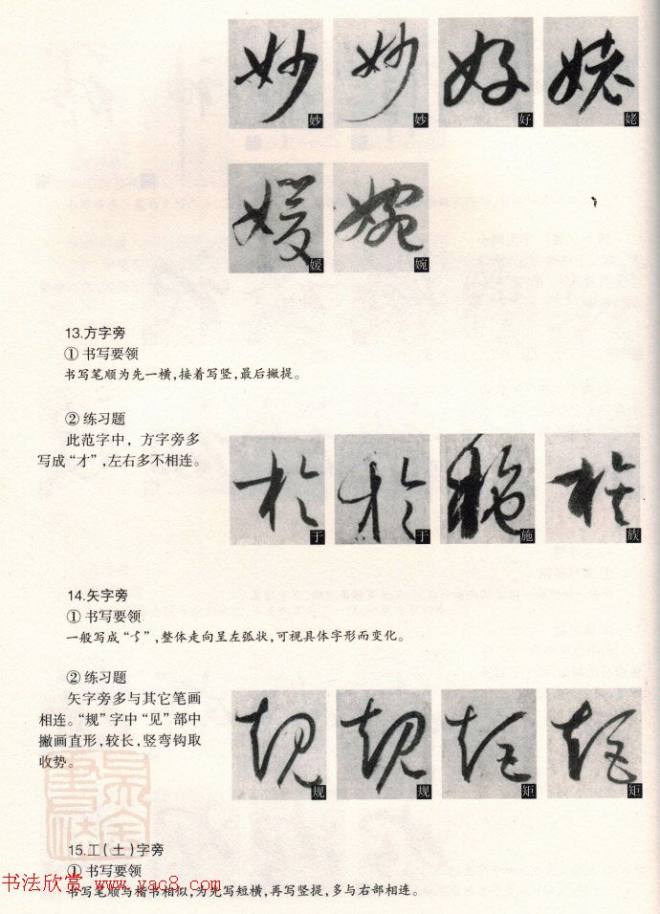 妙 妙 好 姥
媛 婉
13.方字旁
① 书写要领
书写笔顺为先一横,接着写竖,最后撇提。
② 练习题
此范字中，方字旁多
写成“才”,左右多不相连。
于 于 施 族
14.矢字旁
① 书写要领
一般写成“ ”,整体走向呈左弧状,可视具体字形而变化。
② 练习题
矢字旁多与其它笔画
相连。“规”字中“见”部中
撇画直形,较长,竖弯钩取
收势。
规 规 矩 矩
15.工(土)字旁
① 书写要领
书写笔顺与楷书相似,为先写短横,再写竖提,多与右部相连。
书法欣赏 www.yac8.com